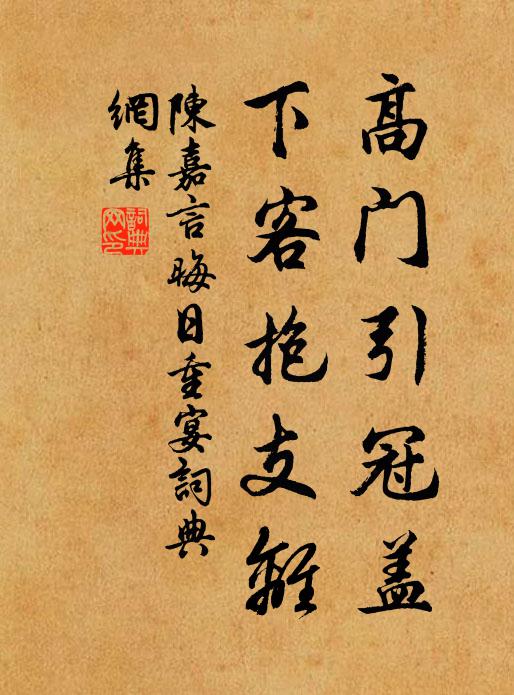 高门引冠盖
下客抱支離
陳嘉言晦日重宴詞典
網集
詞典网印